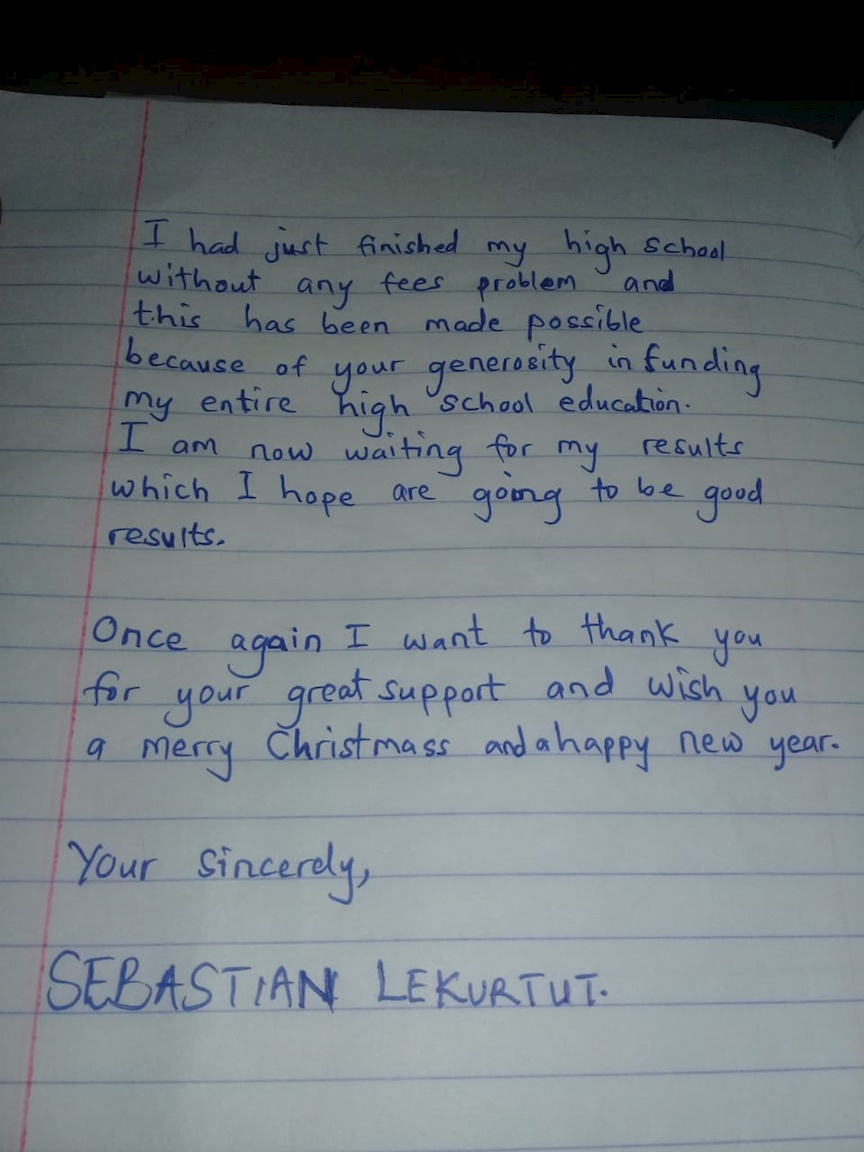 I had just finished my high school
without any fees problem and
this has been made possible
because of your generosity in funding
my entire high school education.
I am now waiting for my results
which I hope are going to be good
results.
Once again I want to thank you
for your great support and wish you
a merry Christmass and a happy new year.
Your sincerely,
SEBASTIAN LEKURTUT.